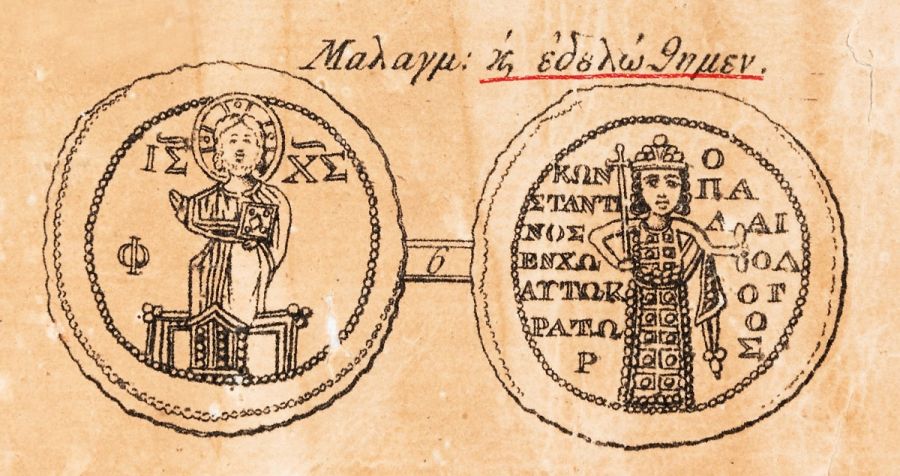 Μαλαγμ: ϗ ἐδελώθημεν.
ΙΣ ΧΣ
Φ
6
ΚΩΝ
ΣΤΑΝΤΙ
ΝΟΣ
ΕΝΧΩ
ΑΥΤΩΚ
ΡΑΤΩ
Ρ
Ο
ΠΑ
Λ ΑΙ
ΟΛ
ΟΓ
ΟΣ